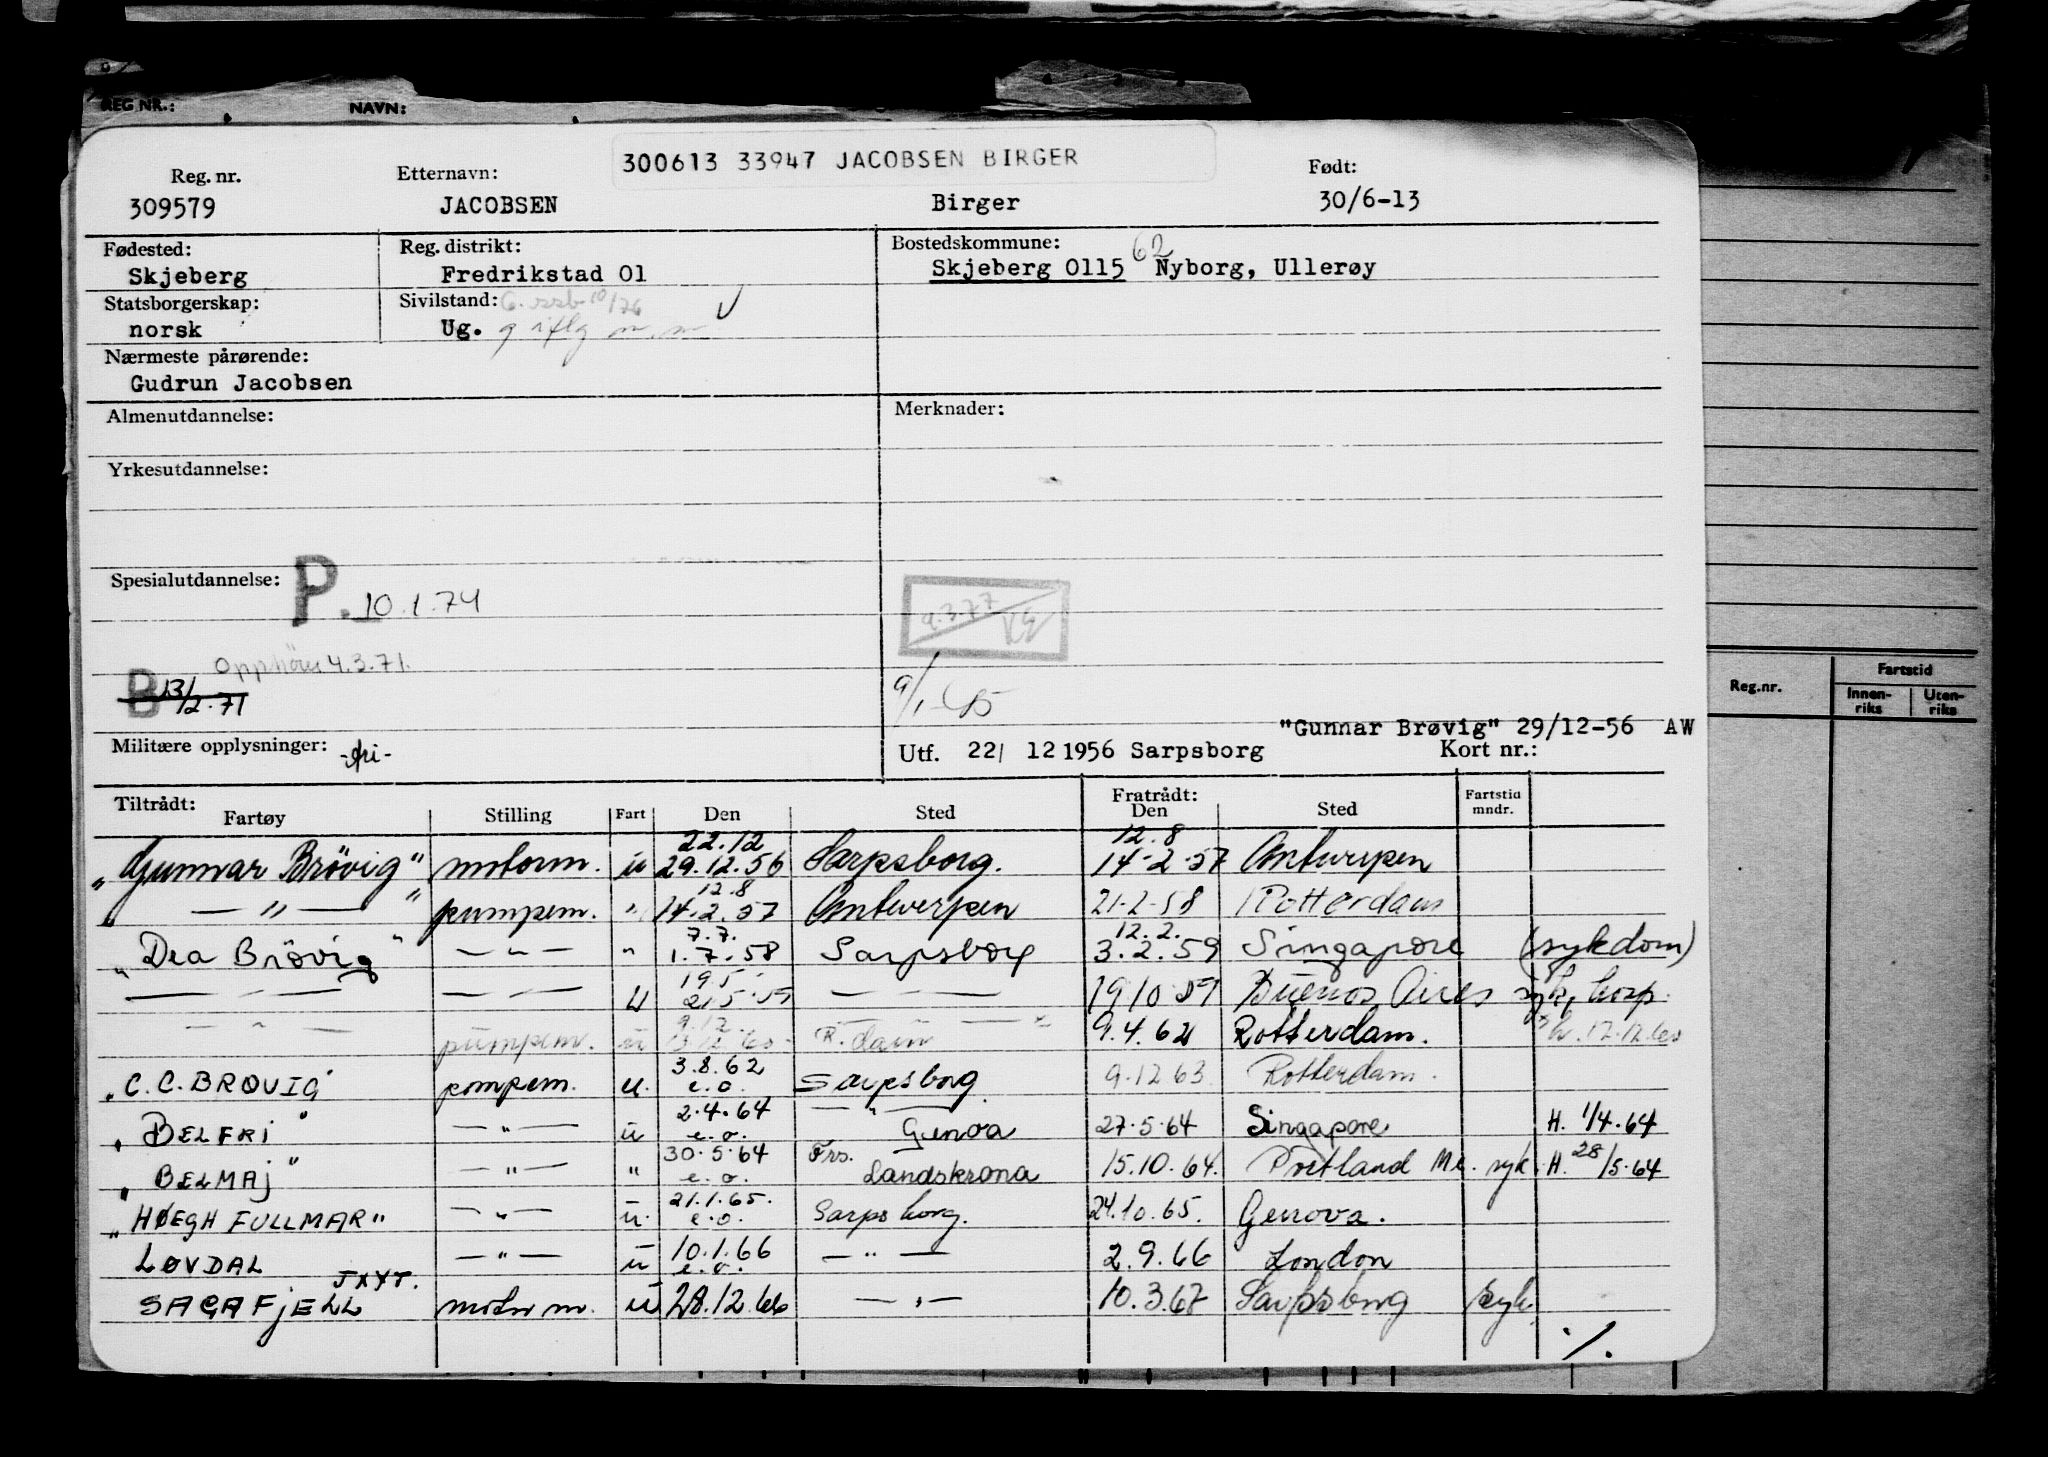 REG NR.: NAVN:
300613 33947 JACOBSEN BIRGER
Reg. nr. Etternavn: Født:
309579 JACOBSEN Birger 30/6-13
Fødested: Reg. distrikt: Bostedskommune: 62
Skjeberg Fredrikstad 01 Skjeberg 0115 Nyborg, Ullerøy
Statsborgerskap: Sivilstand:
norsk Ug.
Nærmeste pårørende:
Gudrun Jacobsen
Almenutdannelse: Merknader:
Yrkesutdannelse:
Spesialutdannelse: P. 10.1.74
9.3.77
Opphører 4.3.71.
B 13/2.71
Reg.nr. Fartstid
Innen-riks Uten-riks
"Gunnar Brøvig" 29/12-56 AW
Militære opplysninger: -fri- Utf. 22/ 12 1956 Sarpsborg Kort nr.:
Tiltrådt: Fratrådt:
Fartøy Stilling Fart Den Sted Den Sted Fartstid mndr.
22.12 12.8
"Gunnar Brövig" motorm. u 29.12.56 Sarpsborg. 14-2-57 Antwerpen
12.8
— " — pumpem. " 14.2.57 Antwerpen 21-2-58 Rotterdam
7.7. 12.2.
"Dea Brövig" — " — " 1.7.58 Sarpsborg 3.2.59 Singapore (sykdom)
19.5
— " — — " — u 21.5.59 — " — 19 10 59 Buenos Aires syk, hosp.
9.12
— " — pumpem. u R.dam 9.4.62 Rotterdam. 12.12.60
3.8.62
"C. C. BRØVIG" pompem. u. e.o. Sarpsborg 9.12 63 Rotterdam.
2.4.64 — " —
"BELFRI" — " — u e.o. Genoa 27.5.64 Singapore H. 1/4.64
30.5.64 Frs.
"BELMAJ" — " — " e.o. Landskrona 15.10.64. Portland Me. syk. H. 28/5.64
21.1.65.
"HØEGH FULLMAR" — " — u. e.o. Sarpsborg. 24.10.65. Genova.
10.1.66
LØVDAL — " — u e.o. — " — 2.9.66 London
JXYT.
SAGAFJELL motorm. u 28.12.66 — " — 10.3.67 Sarpsborg syk
./.